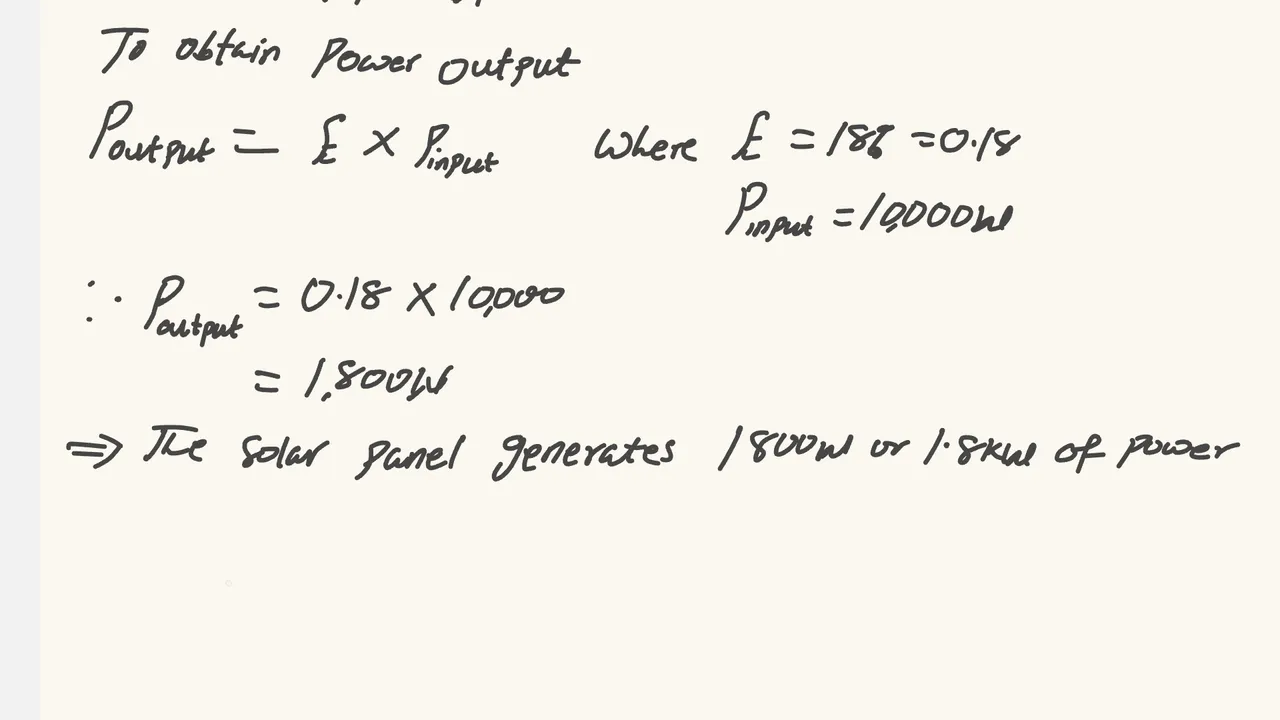 To obtain Power output
Poutput = £ × Pinput where £ = 18% = 0.18
Pinput = 10,000W
∴ Poutput = 0.18 × 10,000
= 1,800W
⇒ The solar panel generates 1800W or 1.8kW of power